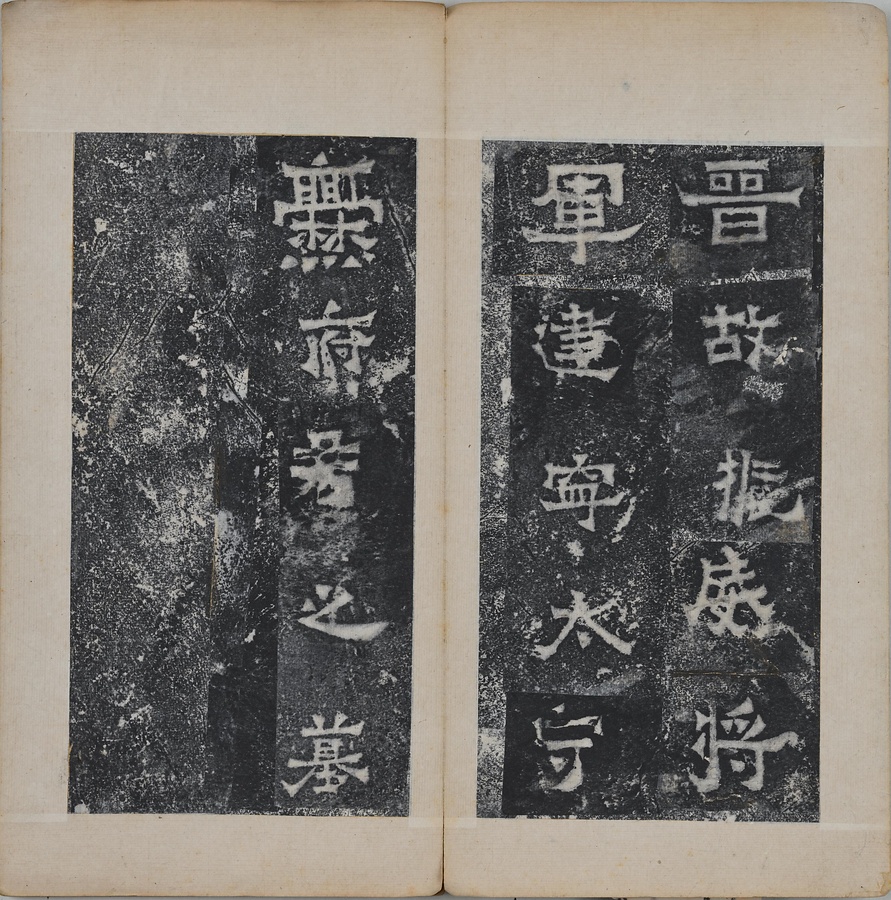 晋故振威將
軍建寧太守
爨府君之墓